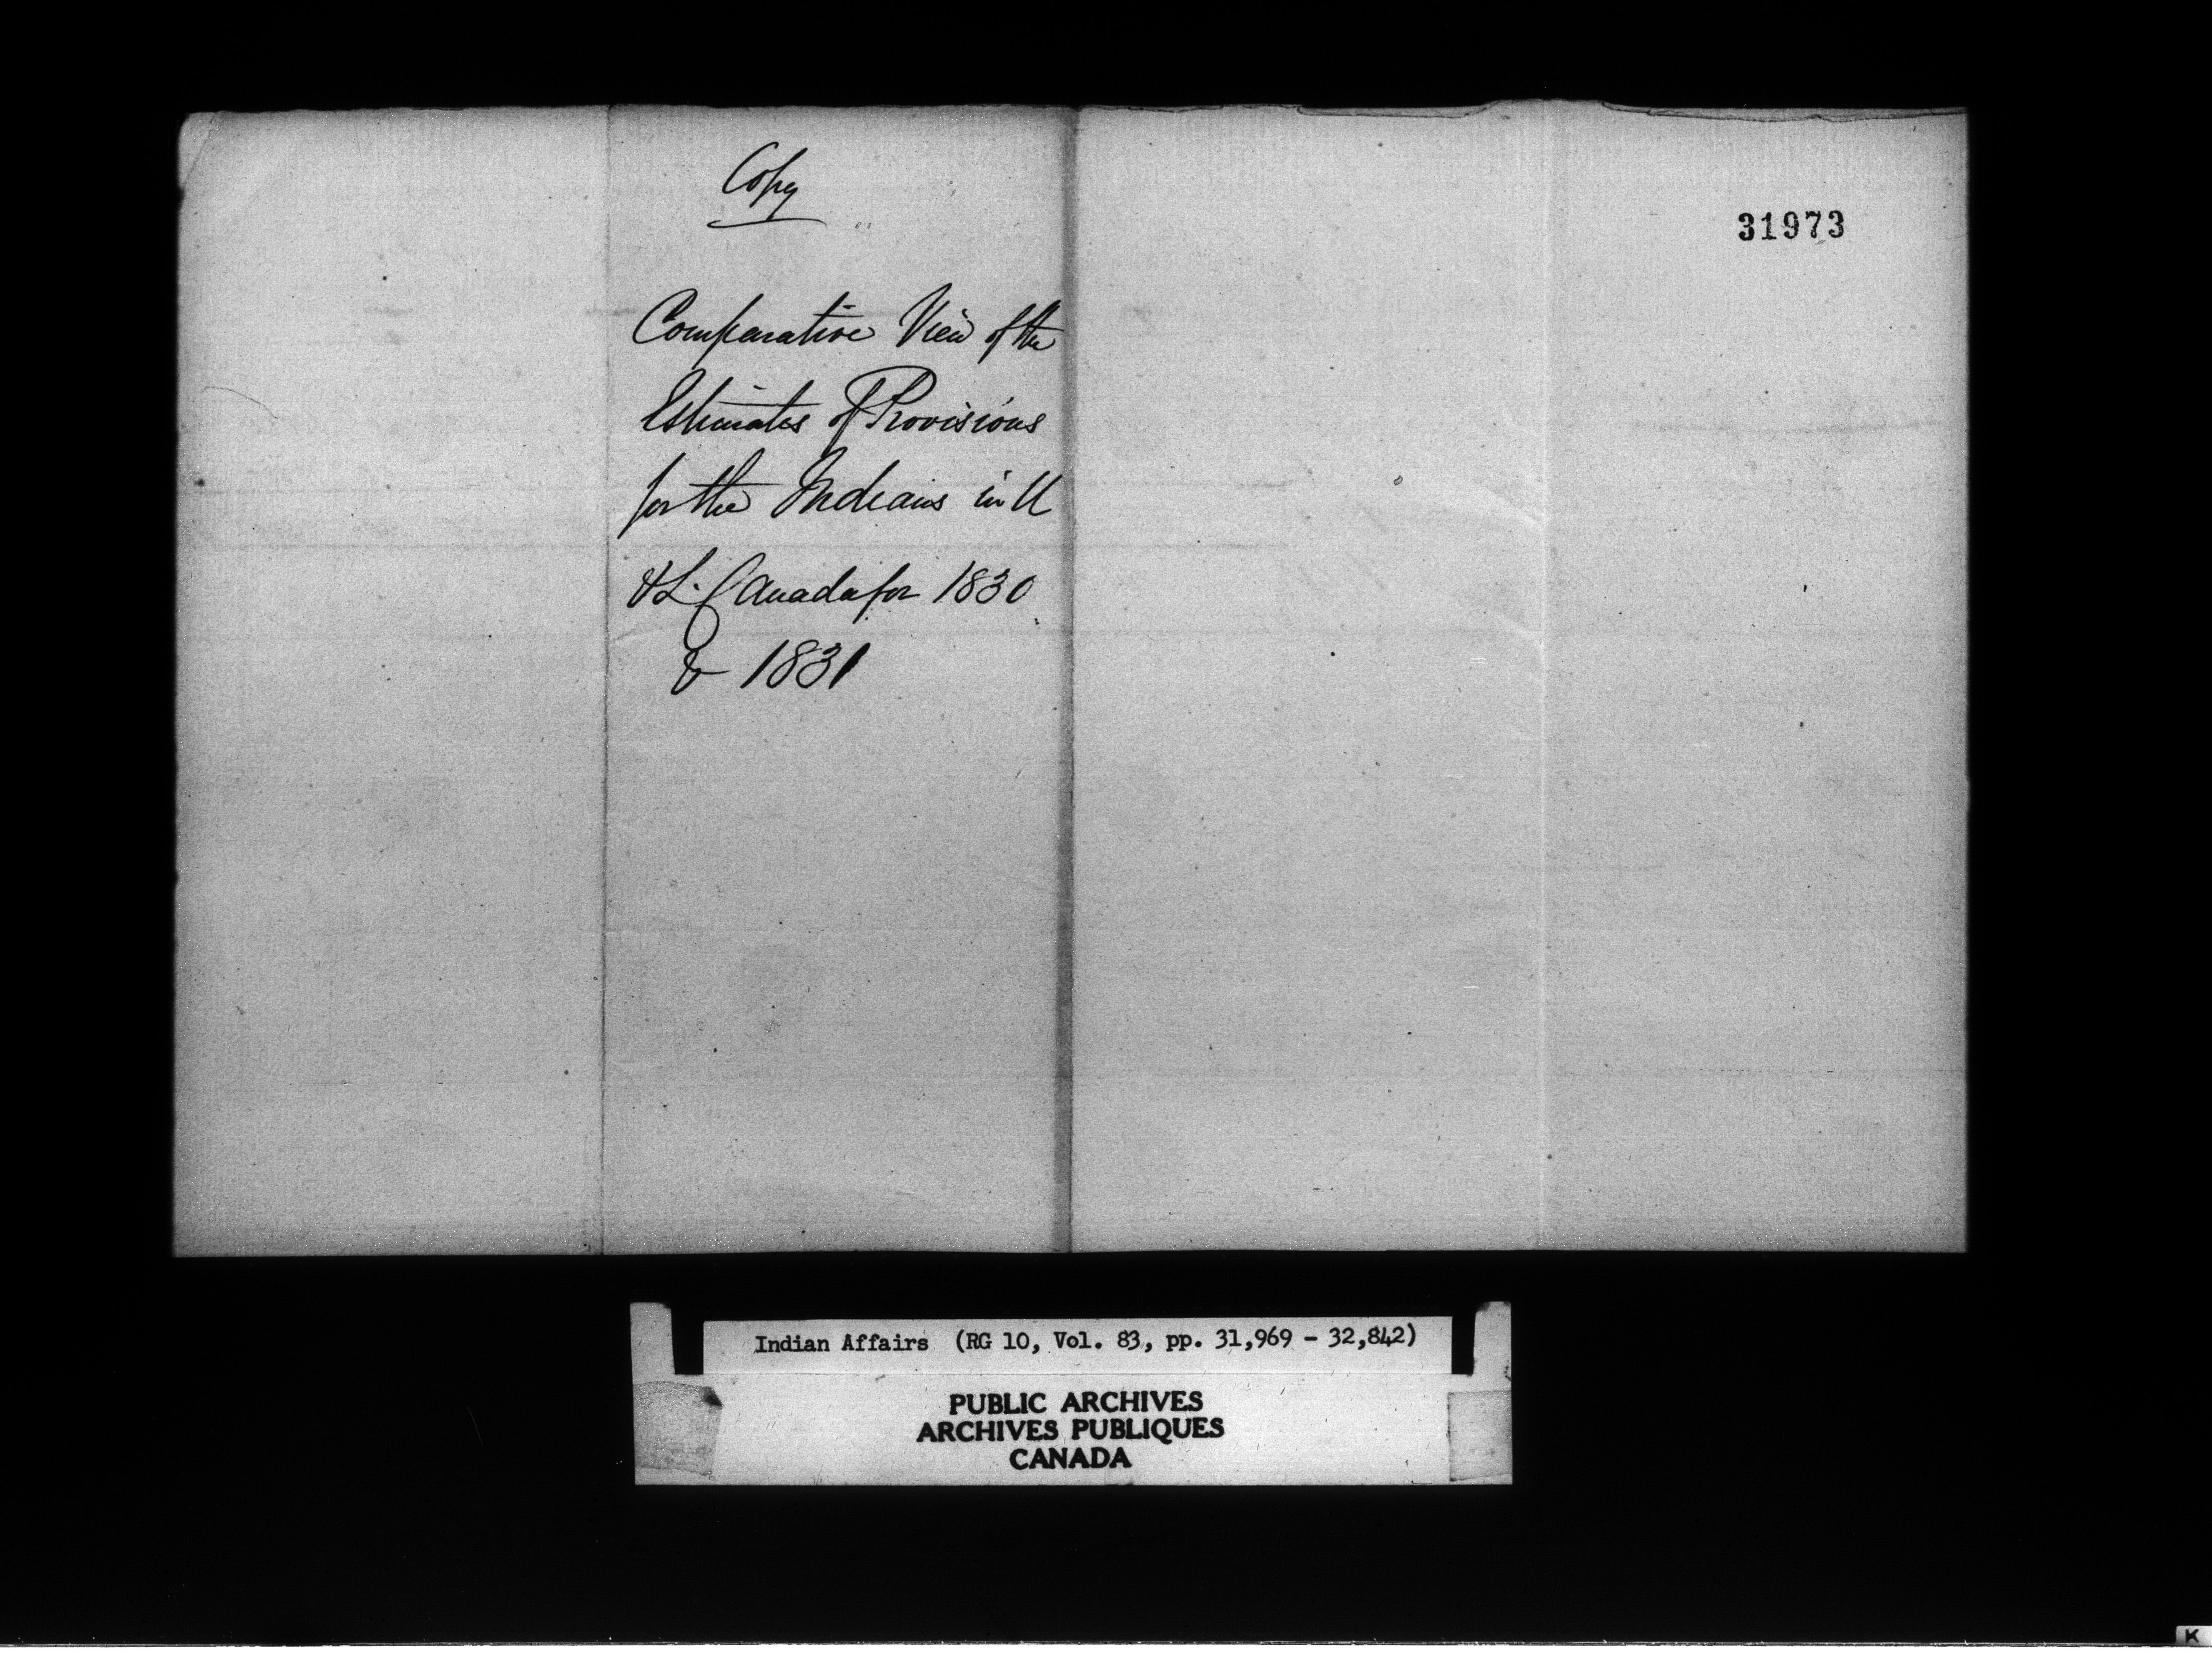 Copy
31973
Comparative View of the
Estimates of Provisions
for the Indians in U
& L. Canada for 1830
& 1831
Indian Affairs (RG 10, Vol. 83, pp. 31,969 - 32,842)
PUBLIC ARCHIVES
ARCHIVES PUBLIQUES
CANADA
K